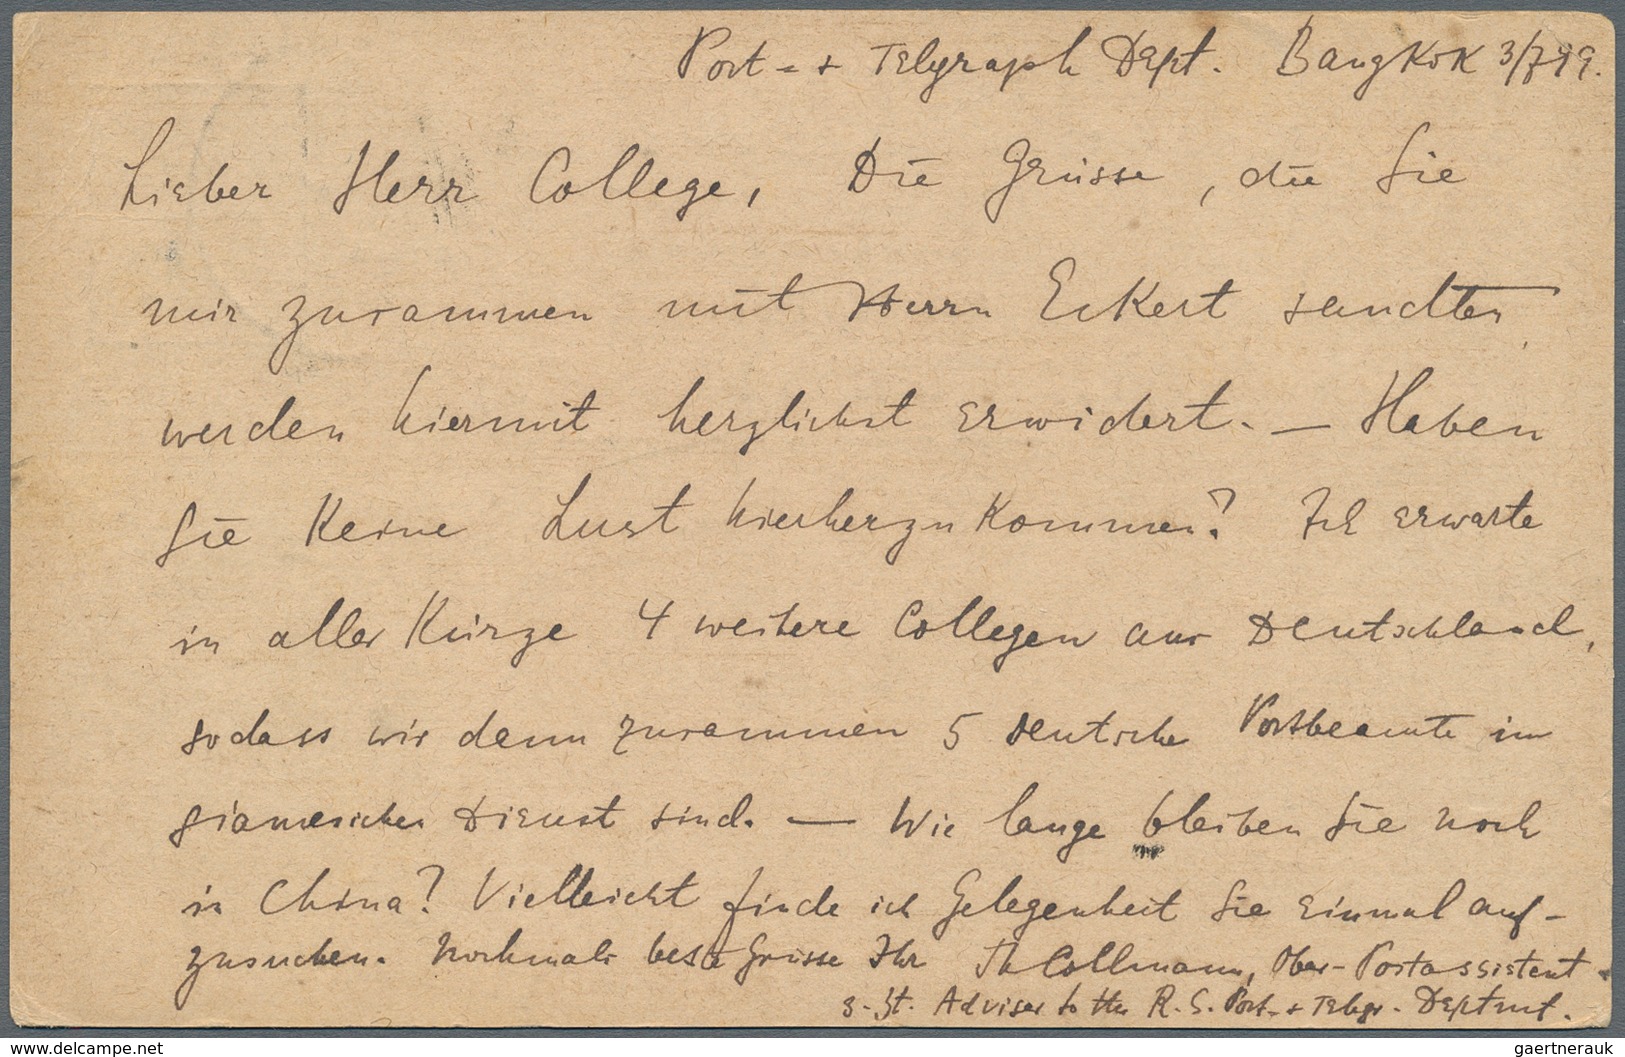 Post- + Telegraph Dept. Bangkok 3/7 99.
Lieber Herr College, Die Grüsse, die Sie
mir zusammen mit Herrn Eckert sandten
werden hiermit herzlichst erwidert. — Haben
Sie keine Lust hierherzukommen? Ich erwarte
in aller Kürze 4 weitere Collegen aus Deutschland,
sodass wir dann zusammen 5 deutsche Postbeamte im
siamesischen Dienst sind. — Wie lange bleiben Sie noch
in China? Vielleicht finde ich Gelegenheit Sie einmal auf-
zusuchen. Nochmals beste Grüsse Ihr Th Collmann, Ober-Postassistent
z. Zt. Adviser to the R. S. Post- + Telegr. Deptmt.
www.delcampe.net
gaertnerauk